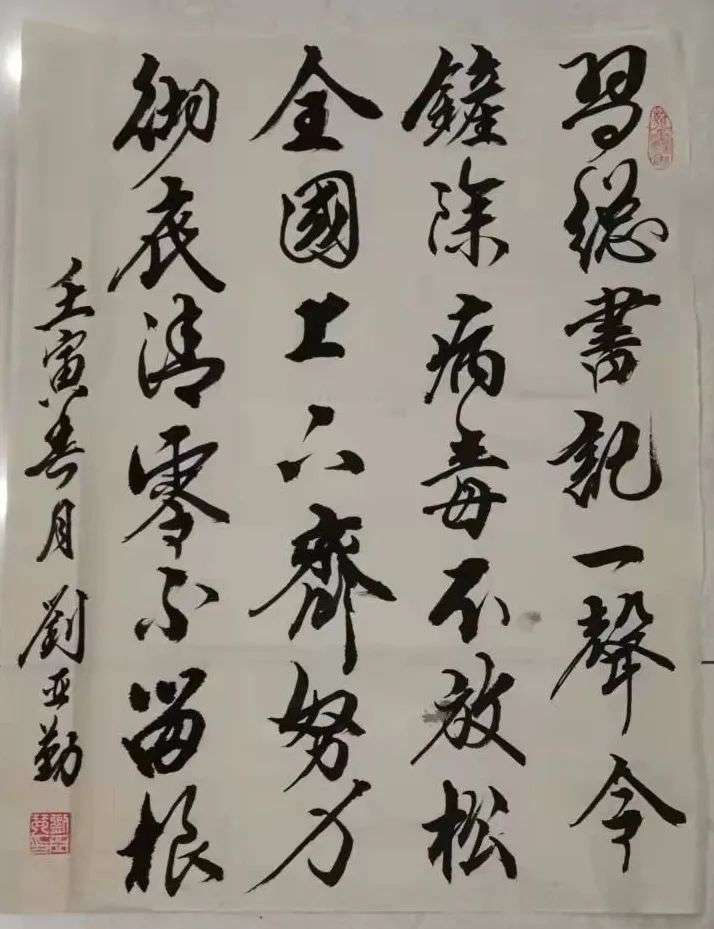 習總書記一聲令
鏟除病毒不放松
全國上下齊努力
彻底清零不留根
壬寅春月 劉亚勤